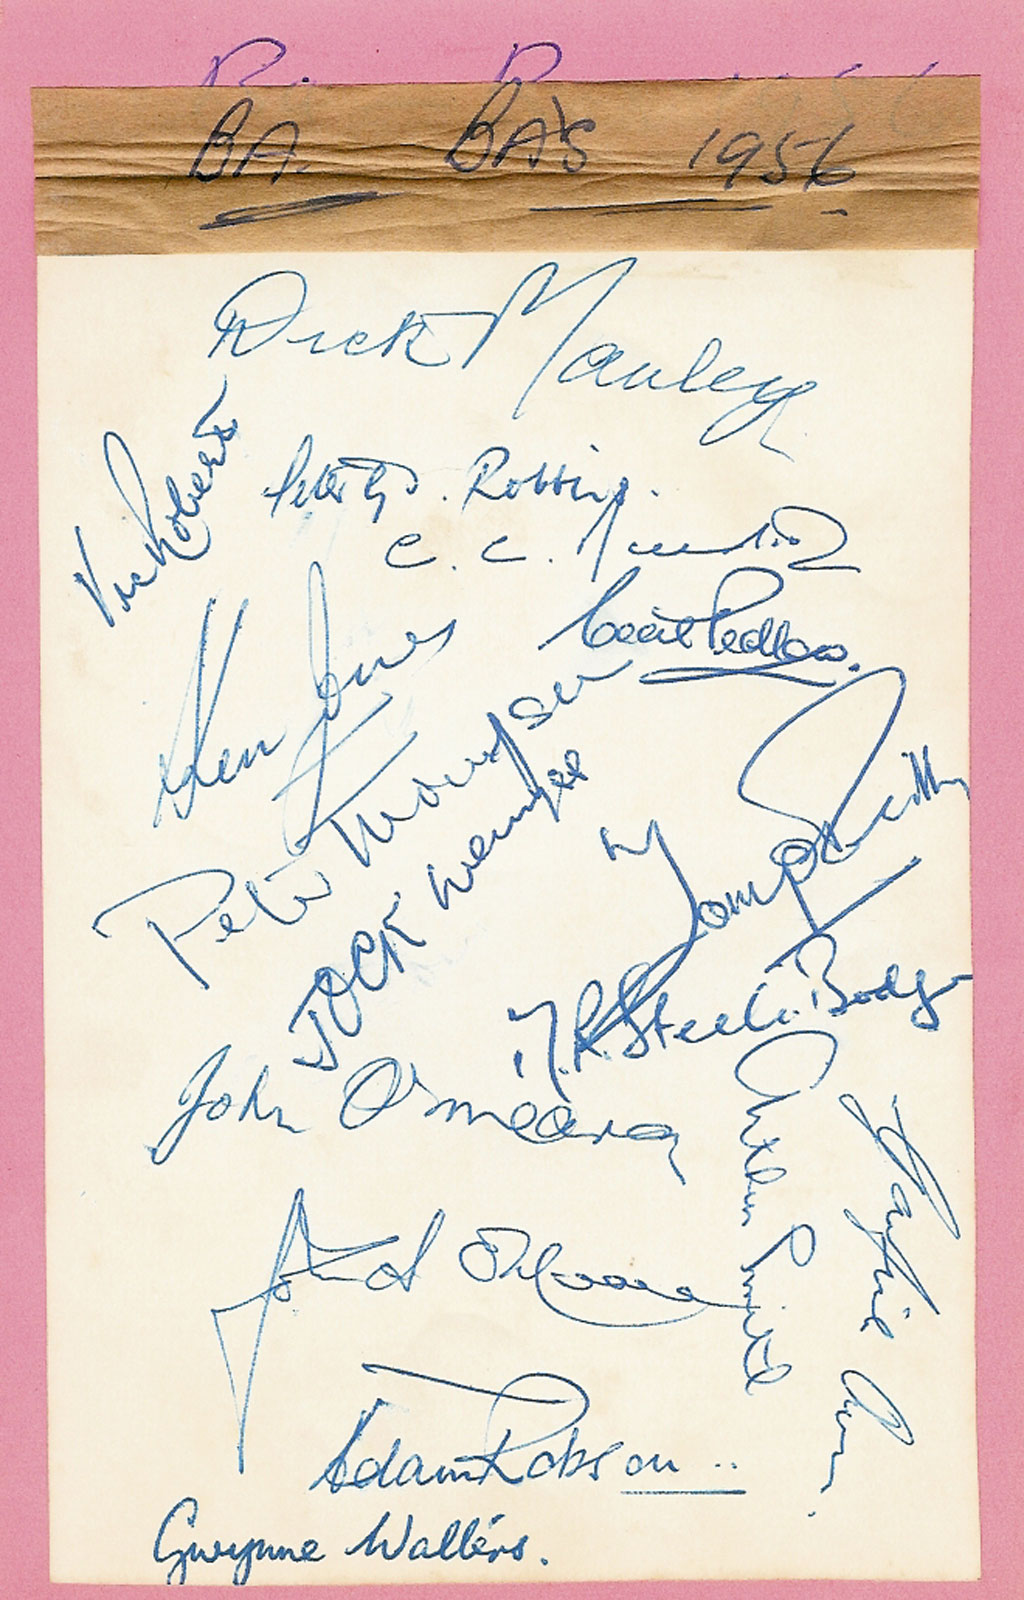 BA. BA'S 1956
Dick Manley
Vic Roberts
Peter G. D. Robbins.
C. C.
Cecil Pedlow.
Ken Jones
Peter Thompson
JOCK Wemyss
Tony O'Reilly
M. R. Steele-Bodger
John O'Meara
Arthur Smith
John
Adam Robson..
Gwynne Walters.